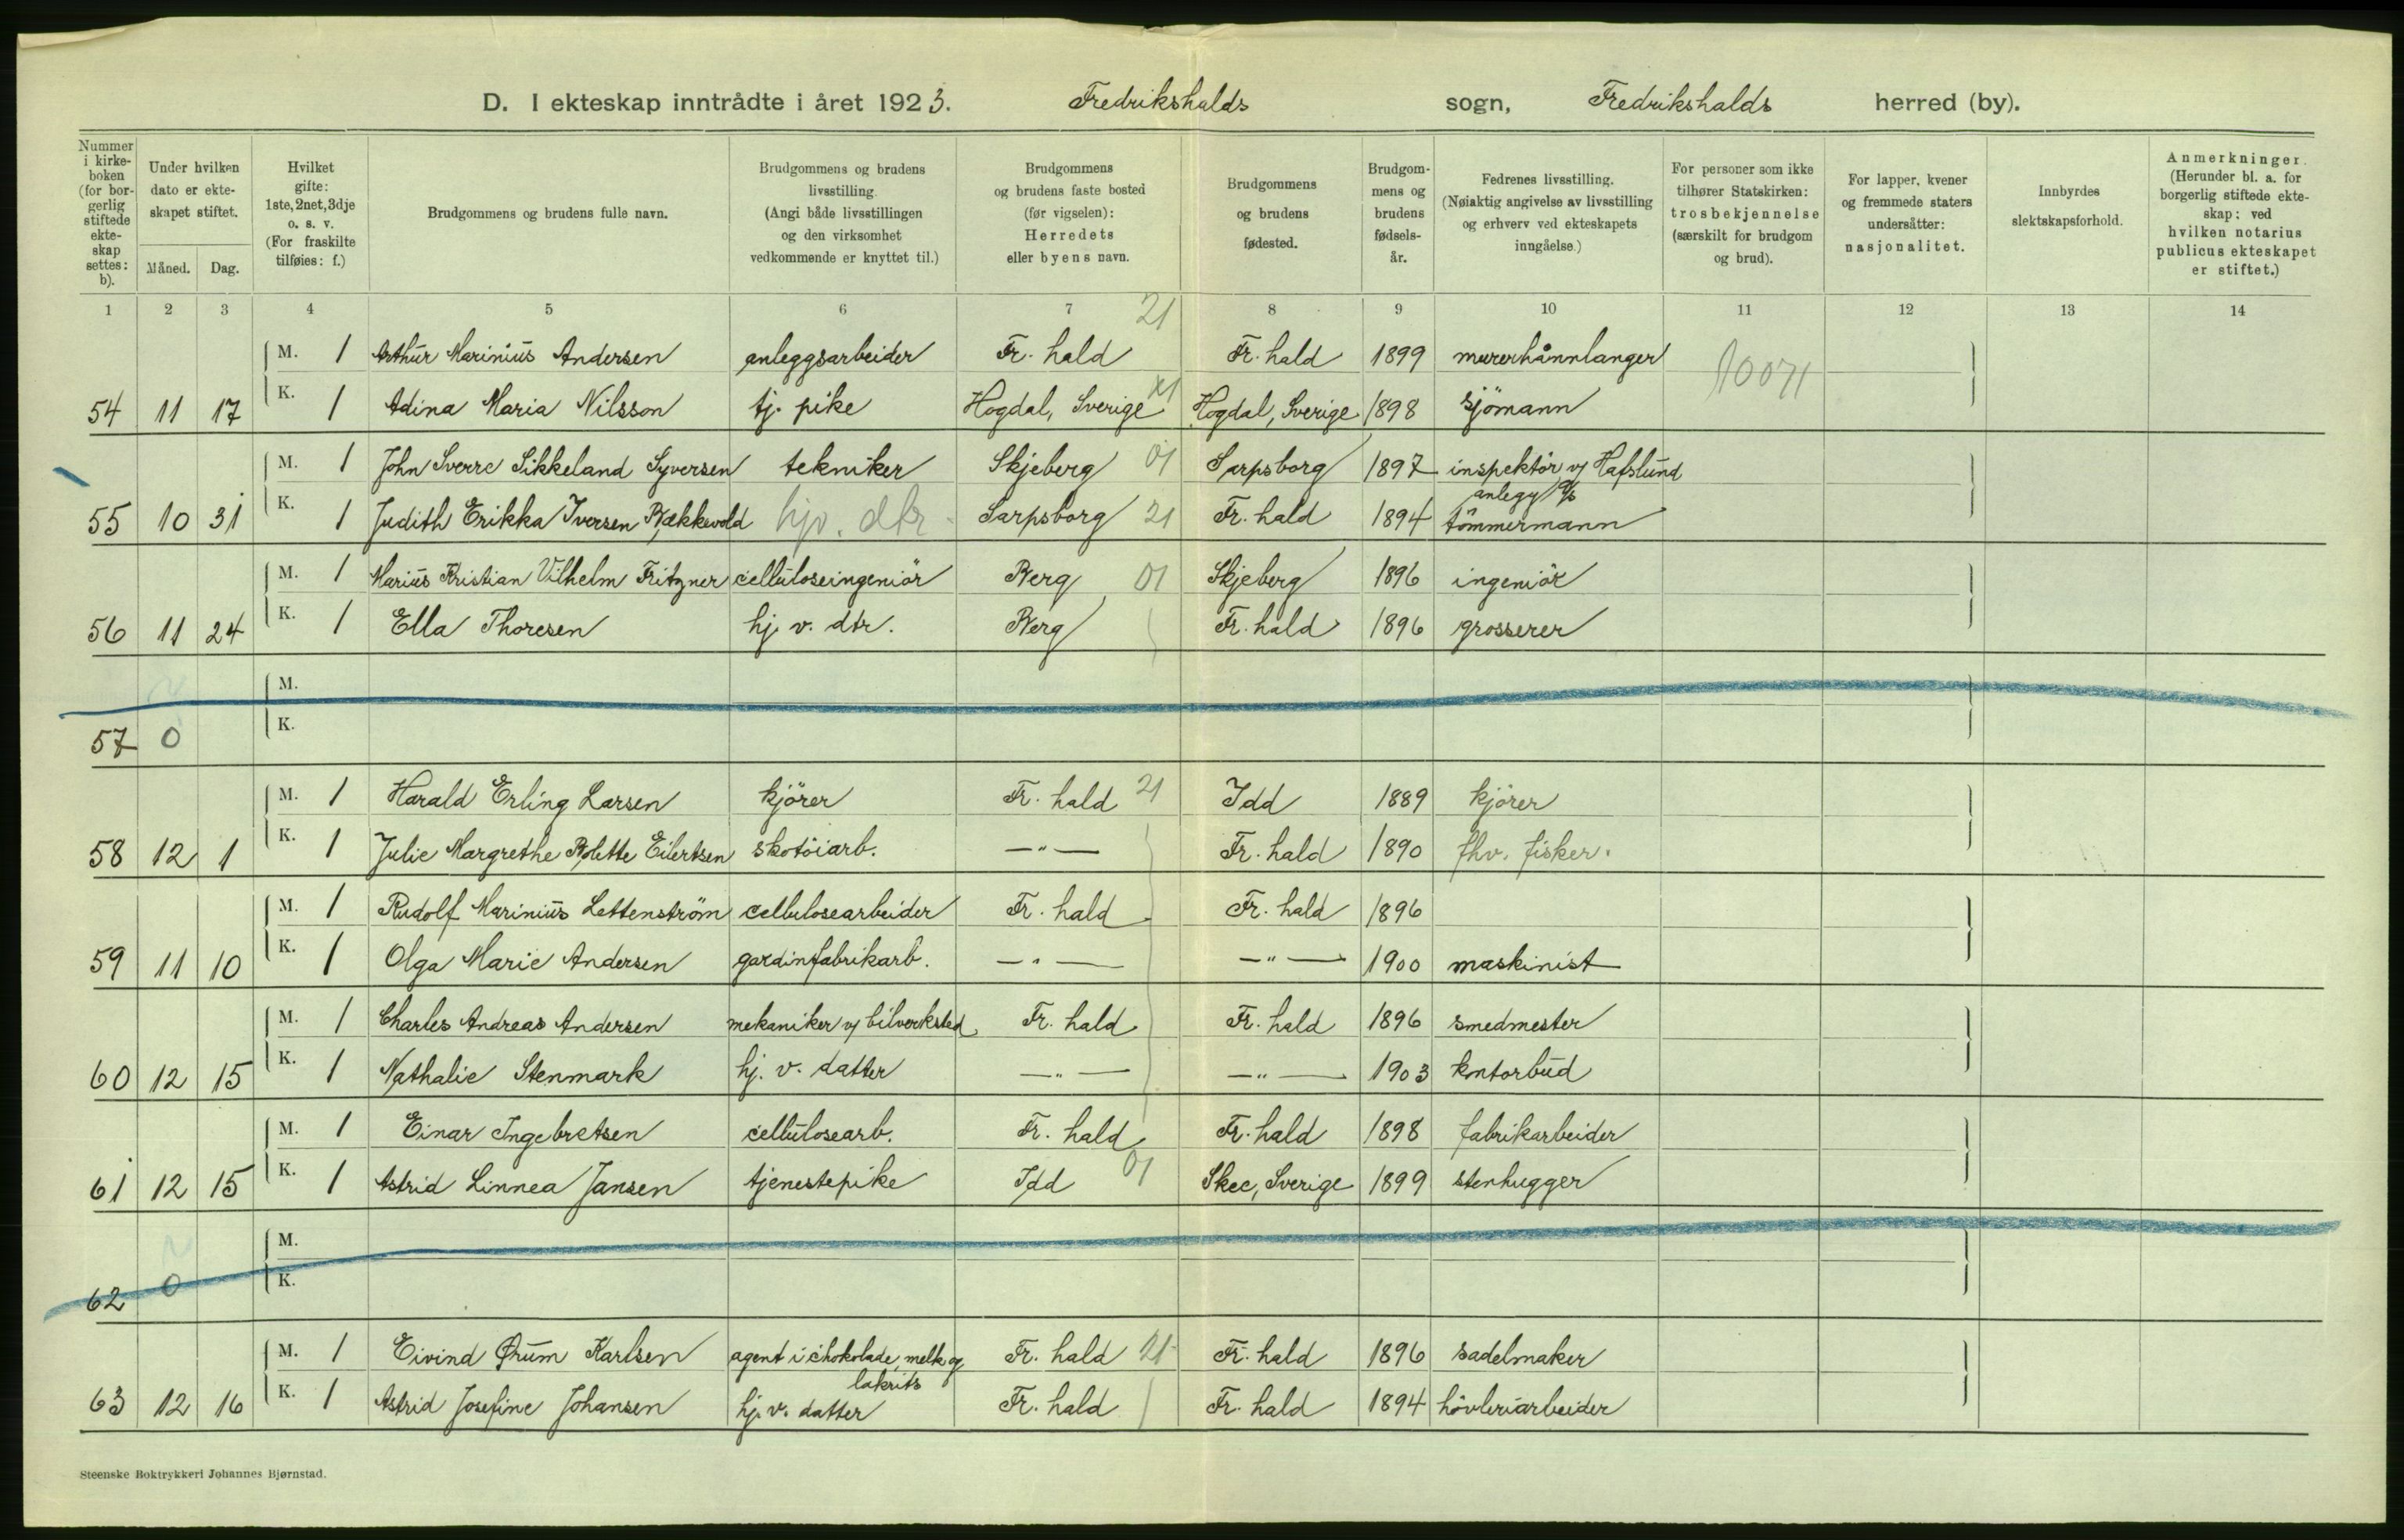 D. I ekteskap inntrådte i året 1923. Fredrikshalds sogn, Fredrikshalds herred (by).
Nummer i kirke- boken (for bor- gerlig stiftede ekte- skap settes: b).
Under hvilken dato er ekte- skapet stiftet.
Måned. Dag.
Hvilket gifte: 1ste, 2net, 3dje o. s. v. (For fraskilte tilføies: f.)
Brudgommens og brudens fulle navn.
Brudgommens og brudens livsstilling. (Angi både livsstillingen og den virksomhet vedkommende er knyttet til.)
Brudgommens og brudens faste bosted (før vigselen): Herredets eller byens navn.
Brudgommens og brudens fødested.
Brudgom- mens og brudens fødsels- år.
Fedrenes livsstilling. (Nøiaktig angivelse av livsstilling og erhverv ved ekteskapets inngåelse.)
For personer som ikke tilhører Statskirken: trosbekjennelse (særskilt for brudgom og brud).
For lapper, kvener og fremmede staters undersåtter: nasjonalitet.
Innbyrdes slektskapsforhold.
Anmerkninger. (Herunder bl. a. for borgerlig stiftede ekte- skap: ved hvilken notarius publicus ekteskapet er stiftet.)
1 2 3 4 5 6 7 8 9 10 11 12 13 14
21
M. 1 Arthur Marinius Andersen anleggsarbeider Fr. hald Fr. hald 1899 murerhånnlanger
54 11 17 K. 1 Adina Maria Nilsson tj. pike Hogdal, Sverige Hogdal, Sverige 1898 sjömann
M. 1 John Sverre Sikkeland Syversen tekniker Skjeberg 01 Sarpsborg 1897 inspektör v/ Hafslund
anlegg A/S
55 10 31 K. 1 Judith Erikka Iversen Bækkevold hjv. dtr. Sarpsborg 21 Fr. hald 1894 tömmermann
M. 1 Marius Kristian Vilhelm Fritzner celluloseingeniör Berg 01 Skjeberg 1896 ingeniör
56 11 24 K. 1 Ella Thoresen hj. v. dtr. Berg Fr. hald 1896 grosserer
M.
57 0 K.
M. 1 Harald Erling Larsen kjörer Fr. hald 21 Idd 1889 kjörer
58 12 1 K. 1 Julie Margrethe Bolette Eilertsen skotöiarb. —"— Fr. hald 1890 fhv. fisker.
M. 1 Rudolf Marinius Lettenström cellulosearbeider Fr. hald Fr. hald 1896
59 11 10 K. 1 Olga Marie Andersen gardinfabrikarb. —"— —"— 1900 maskinist
M. 1 Charles Andreas Andersen mekaniker v/ bilverksted Fr. hald Fr. hald 1896 smedmester
60 12 15 K. 1 Nathalie Stenmark hj. v. datter —"— —"— 1903 kontorbud
M. 1 Einar Ingebretsen cellulosearb. Fr. hald Fr. hald 1898 fabrikarbeider
61 12 15 K. 1 Astrid Linnea Jansen tjenestepike Idd 01 Skee, Sverige 1899 stenhugger
M.
62 0 K.
M. 1 Eivind Ørum Karlsen agent i chokolade, melk og Fr. hald 21 Fr. hald 1896 sadelmaker
lakrits
63 12 16 K. 1 Astrid Josefine Johansen hj. v. datter Fr. hald Fr. hald 1894 hövleriarbeider
Steenske Boktrykkeri Johannes Bjørnstad.